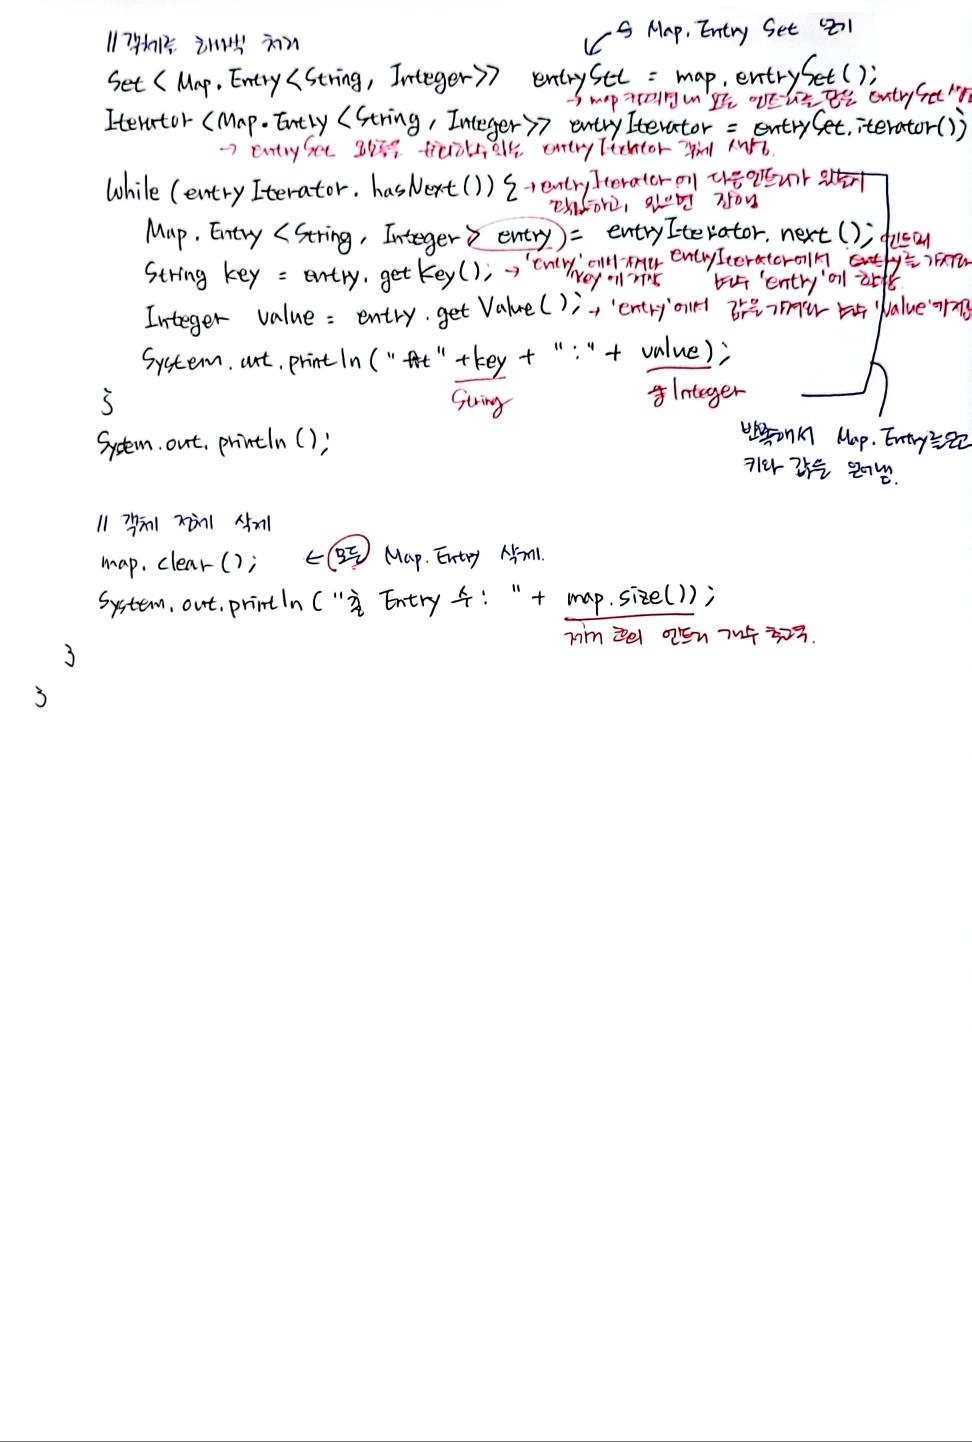 // 객체를 하나씩 처리
↳ Map.Entry Set 얻기
Set < Map.Entry<String, Integer>> entrySet = map.entrySet();
→ map 컬렉션 내 모든 엔트리를 담은 entrySet
Iterator <Map.Entry <String, Integer>> entryIterator = entrySet.iterator()
→ entrySet entryIterator 객체 생성.
While (entryIterator.hasNext()) {
→ entryIterator에 다음 엔트리가 있는지
있으면 진행
Map.Entry <String, Integer> entry = entryIterator.next();
entryIterator에서 entry를 가져와
변수 'entry'에 할당
String key = entry.getKey();
→ 'entry'에서 가져와
key에 저장
Integer value = entry.getValue();
→ 'entry'에서 값을 가져와 변수 'value'에 저장
System.out.println(" " +key + ":" + value);
String
Integer
}
System.out.println();
반복해서 Map.Entry를 얻고
키와 값을 얻어냄.
// 객체 전체 삭제
map.clear();
← 모든 Map.Entry 삭제.
System.out.println("총 Entry 수: " + map.size());
엔트리 개수 출력.
}
}